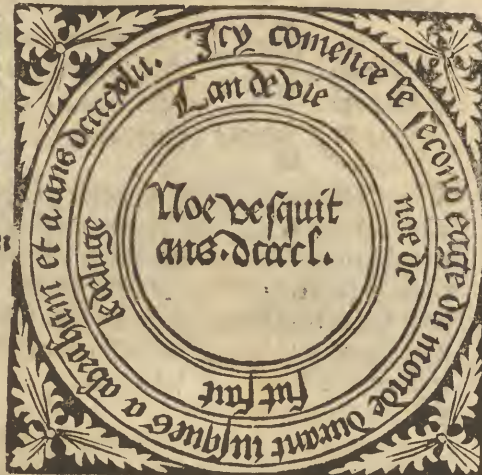 Icy comence le second eage du monde durant iusques a abraham et a ans dccccxlii.
Lan de vie noe dc fut fait le deluge
Noe vesquit
ans.dccccl.